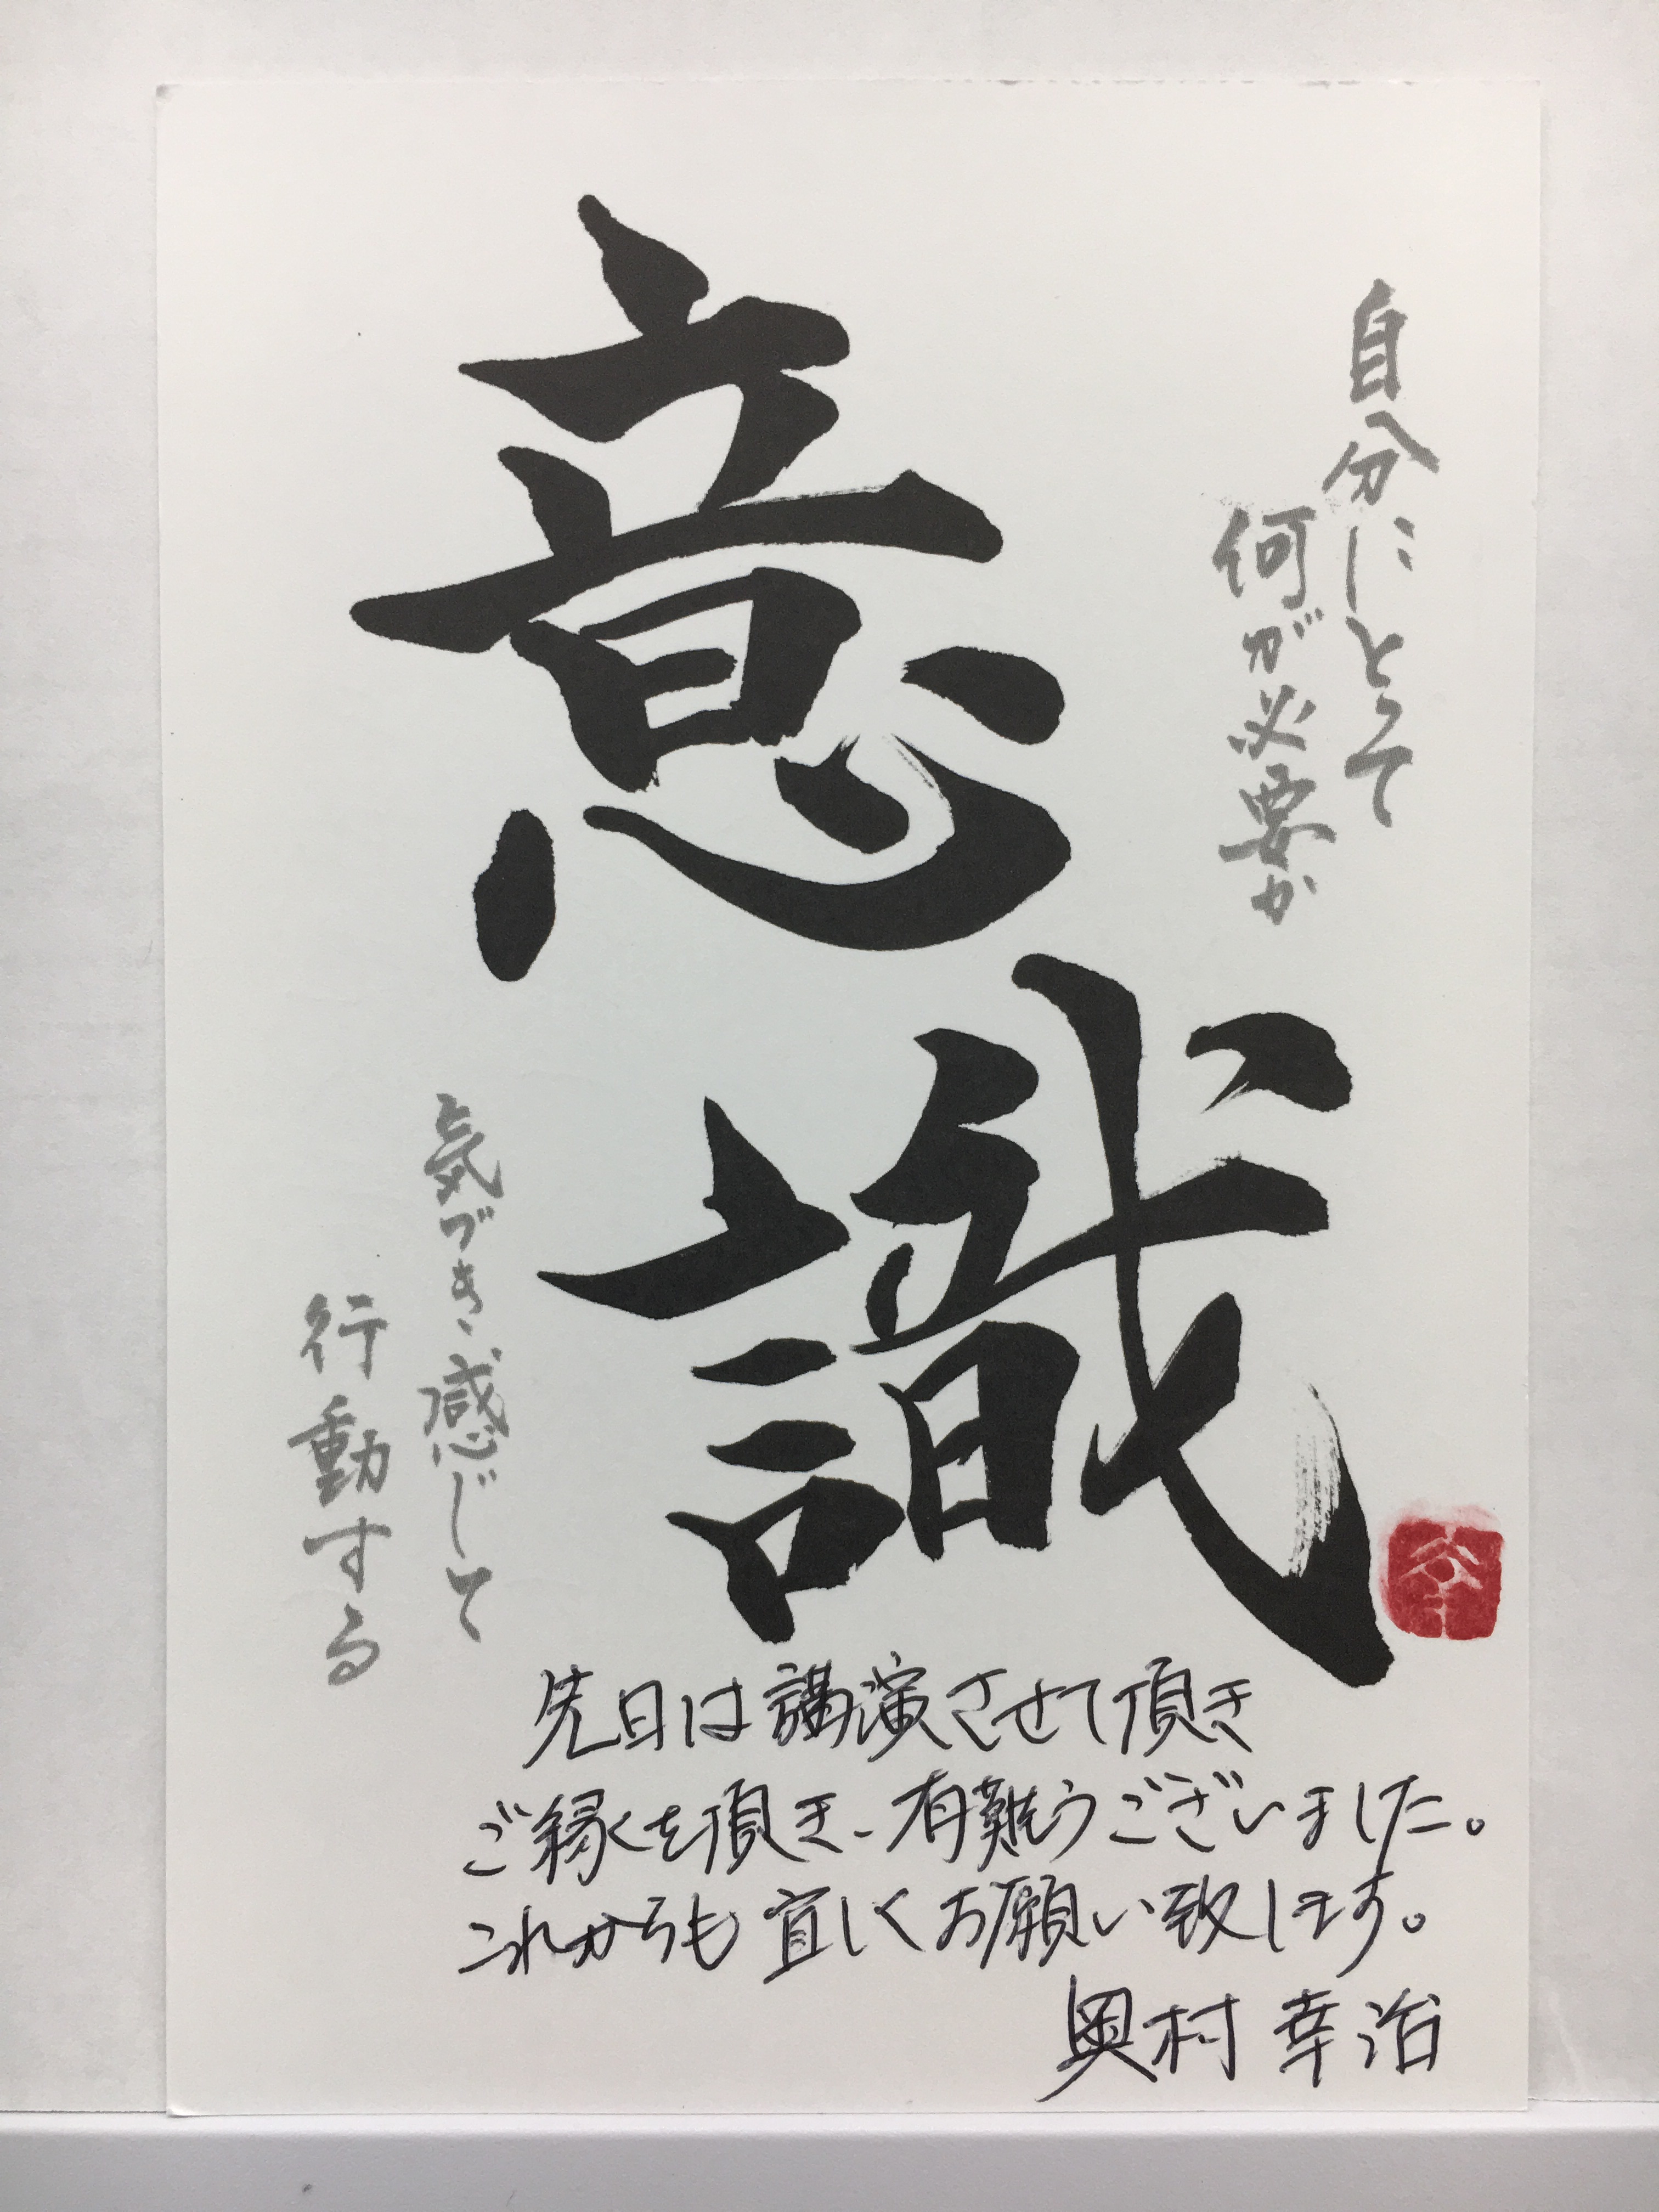 自分にとって
何が必要か
意識
気づき、感じて
行動する
先日は講演させて頂き
ご縁を頂き、有難うございました。
これからも宜しくお願い致します。
奥村幸治